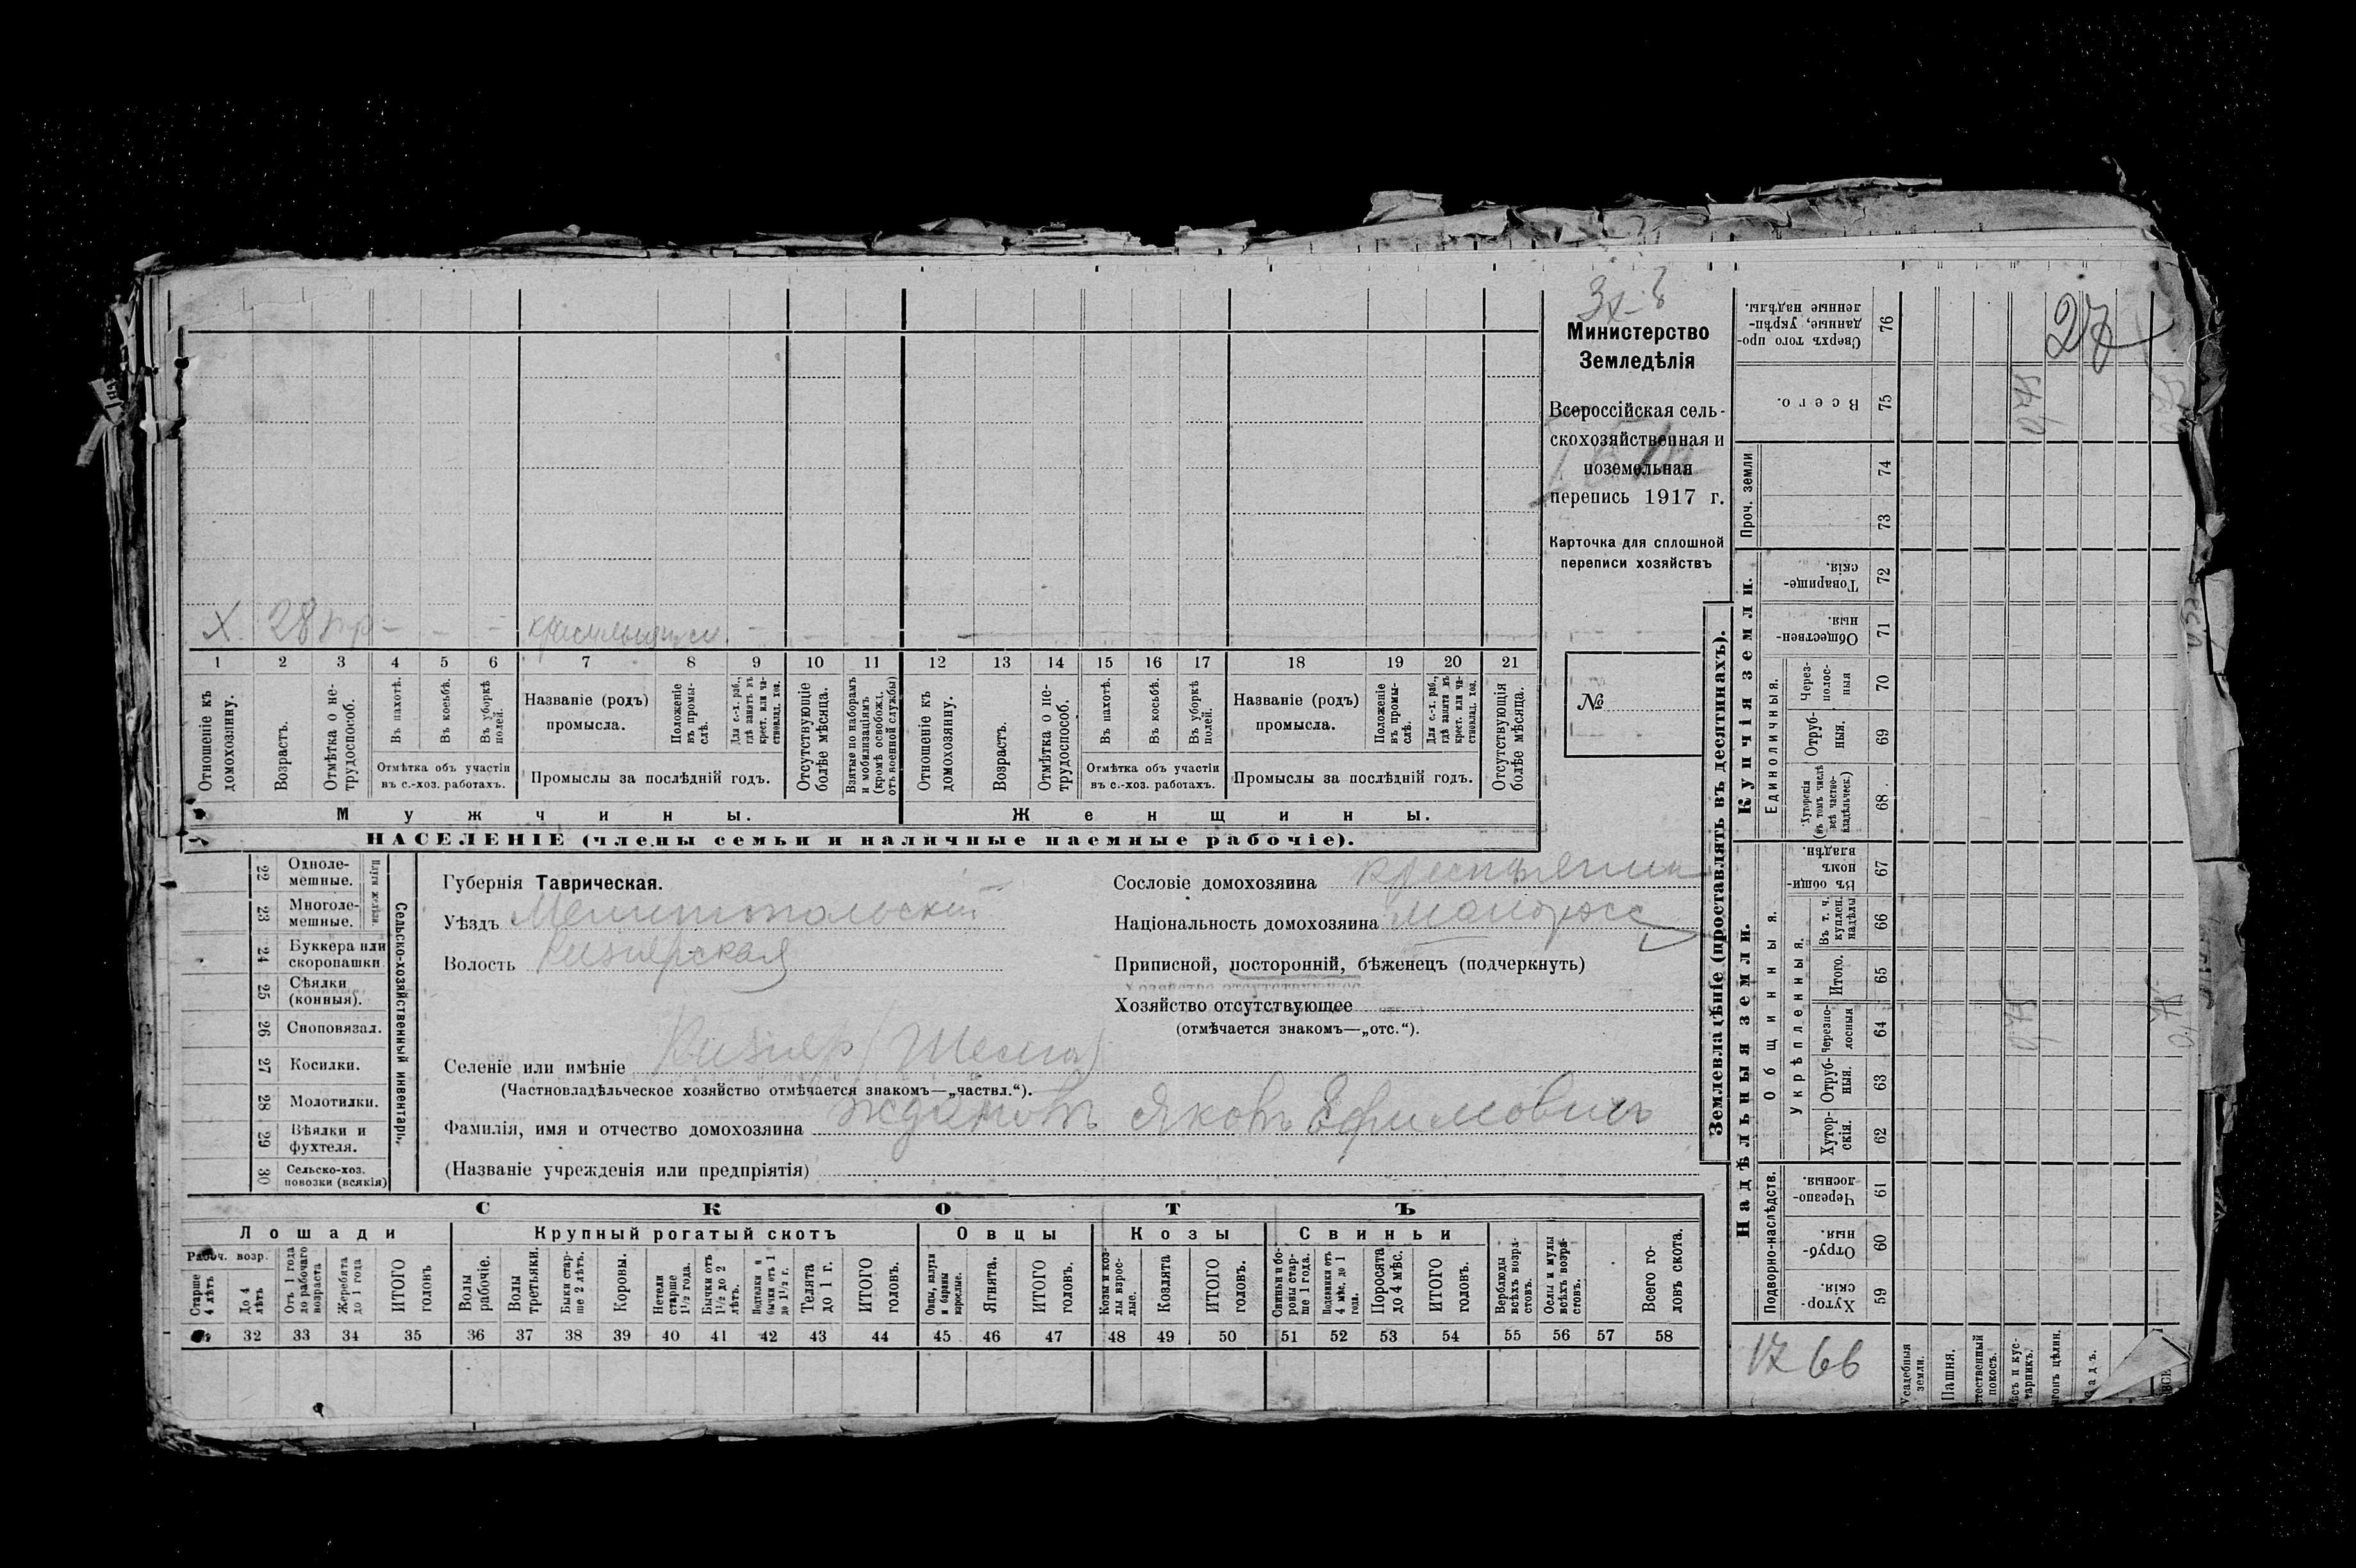 27
Министерство
Земледѣлія
Всероссійская сель-
скохозяйственная и
поземельная
перепись 1917 г.
Карточка для сплошной
переписи хозяйствъ
№
Х 28 – – –
1 2 3 4 5 6 7 8 9 10 11 12 13 14 15 16 17 18 19 20 21
Отношеніе къ домохозяину.
Возрастъ.
Отмѣтка о не-трудоспособ.
Въ пахотѣ.
Въ косьбѣ.
Въ уборкѣ полей.
Отмѣтка объ участіи
въ с.-хоз. работахъ.
Названіе (родъ)
промысла.
Положеніе въ промы-слѣ.
Для с.-х. раб., гдѣ занятъ въ крест. или ча-стновлад. хоз.
Промыслы за послѣдній годъ.
Отсутствующіе болѣе мѣсяца.
Взятые по наборамъ и мобилизаціямъ (кромѣ освобожд. отъ военной службы)
Отношеніе къ домохозяину.
Возрастъ.
Отмѣтка о не-трудоспособ.
Въ пахотѣ.
Въ косьбѣ.
Въ уборкѣ полей.
Отмѣтка объ участіи
въ с.-хоз. работахъ.
Названіе (родъ)
промысла.
Положеніе въ промы-слѣ.
Для с.-х. раб., гдѣ занята въ крест. или ча-стновлад. хоз.
Промыслы за послѣдній годъ.
Отсутствующія болѣе мѣсяца.
Мужчины. Женщины.
НАСЕЛЕНІЕ (члены семьи и наличные наемные рабочіе).
Сельско-хозяйственный инвентарь.
Плуги желѣзн.
22 Одноле-мешные.
23 Многоле-мешные.
24 Буккера или скоропашки
25 Сѣялки (конныя).
26 Сноповязал.
27 Косилки.
28 Молотилки.
29 Вѣялки и фухтеля.
30 Сельско-хоз. повозки (всякія)
Губернія Таврическая.
Уѣздъ Мелитопольскій
Волость Кизіярская
Селеніе или имѣніе Кизіяр
(Частновладѣльческое хозяйство отмѣчается знакомъ—„частвл.“).
Фамилія, имя и отчество домохозяина Ждановъ Яковъ Ефимовичъ
(Названіе учрежденія или предпріятія)
Сословіе домохозяина крестьянин
Національность домохозяина малорос
Приписной, посторонній, бѣженецъ (подчеркнуть)
Хозяйство отсутствующее
(отмѣчается знакомъ—„отс.“).
СКОТЪ
Лошади
Рабоч. возр.
Старше 4 лѣтъ
До 4 лѣтъ
Отъ 1 года до рабочаго возраста
Жеребята до 1 года
ИТОГО головъ
Крупный рогатый скотъ
Волы рабочіе.
Волы третьяки.
Быки стар-ше 2 лѣтъ.
Коровы.
Нетели старше 1½ года.
Бычки отъ 1½ до 2 лѣтъ.
Подтелки и бычки отъ 1 до 1½ г.
Телята до 1 г.
ИТОГО головъ.
Овцы
Овцы, валухи и бараны взрослые.
Ягнята.
ИТОГО головъ.
Козы
Козы и коз-лы взрос-лые.
Козлята
ИТОГО головъ.
Свиньи
Свиньи и бо-ровы стар-ше 1 года.
Подсвинки отъ 4 мѣс. до 1 года.
Поросята до 4 мѣс.
ИТОГО головъ.
Верблюды всѣхъ возра-стовъ.
Ослы и мулы всѣхъ возра-стовъ.
Всего го-ловъ скота.
32 33 34 35 36 37 38 39 40 41 42 43 44 45 46 47 48 49 50 51 52 53 54 55 56 57 58
Землевладѣніе (проставлять въ десятинахъ).
Купчія земли.
Сверхъ того про-данные, укрѣп-ленные надѣлы. 76
Всего. 75
Проч. земли
74
73
Товарище-скія. 72
Обществен-ныя. 71
Единоличныя.
Через-полос-ныя 70
Отруб-ныя. 69
Хуторскія (въ томъ числѣ всѣ частно-владѣльческ.) 68
Надѣльныя земли.
Общинныя.
Въ общи-номъ владѣн. 67
Укрѣпленныя.
Въ т. ч. куплен. надѣлы 66
Итого. 65
Черезпо-лосныя 64
Отруб-ныя. 63
Хутор-скія. 62
Подворно-наслѣдств.
Черезпо-лосныя. 61
Отруб-ныя. 60
Хутор-скія. 59
1766
Усадебныя земли.
Пашня.
покосъ.
тарникъ.